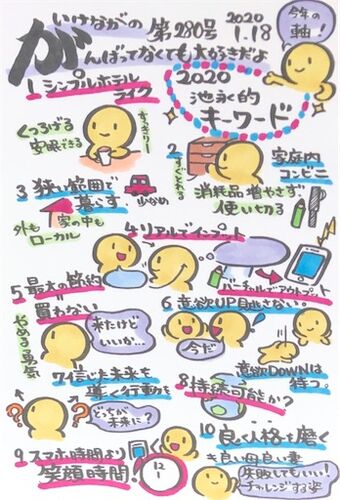 いけながの
がんばってなくても大好きだよ
第280号
2020
1.18
今年の
軸!
1 シンプルホテル
ライク
くつろげる
安眠できる
すっきりー
2020
池永的
キーワード
2 家庭内
コンビニ
すぐとれる
消耗品増やさず
使い切る
3 狭い範囲で
暮らす
少なめ
外も
家の中も
ローカル
4 リアルでインプット
バーチャルでアウトプット
5 最大の節約
買わない
やめる勇気
来たけど
いいや…
6 意欲UP逃さない。
今だ
意欲DOWNは
待つ。
7 信じた未来を
導く行動を
どっちが
未来に?
8 持続可能か?
9 スマホ時間より
笑顔時間!
12
1
10 良く人格を磨く
き良い母良い妻
失敗してもいい!
チャレンジする姿